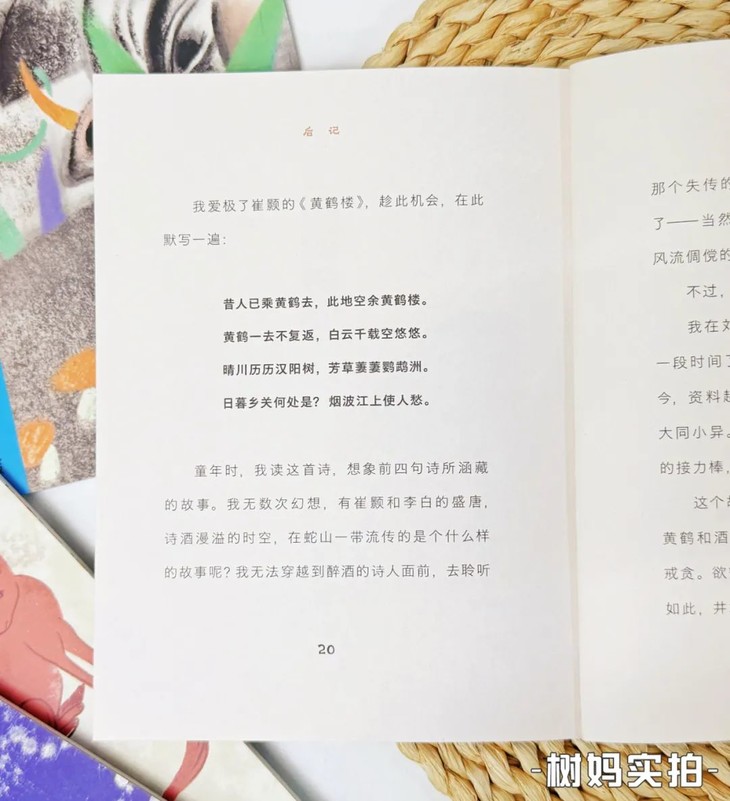 后 记
我爱极了崔颢的《黄鹤楼》，趁此机会，在此
默写一遍：
昔人已乘黄鹤去，此地空余黄鹤楼。
黄鹤一去不复返，白云千载空悠悠。
晴川历历汉阳树，芳草萋萋鹦鹉洲。
日暮乡关何处是？烟波江上使人愁。
童年时，我读这首诗，想象前四句诗所涵藏
的故事。我无数次幻想，有崔颢和李白的盛唐，
诗酒漫溢的时空，在蛇山一带流传的是个什么样
的故事呢？我无法穿越到醉酒的诗人面前，去聆听
20
那个失传的
了——当然
风流倜傥的
不过，
我在刘
一段时间了
今，资料起
大同小异。
的接力棒，
这个故
黄鹤和酒
戒贪。欲
如此，井
-树妈实拍-